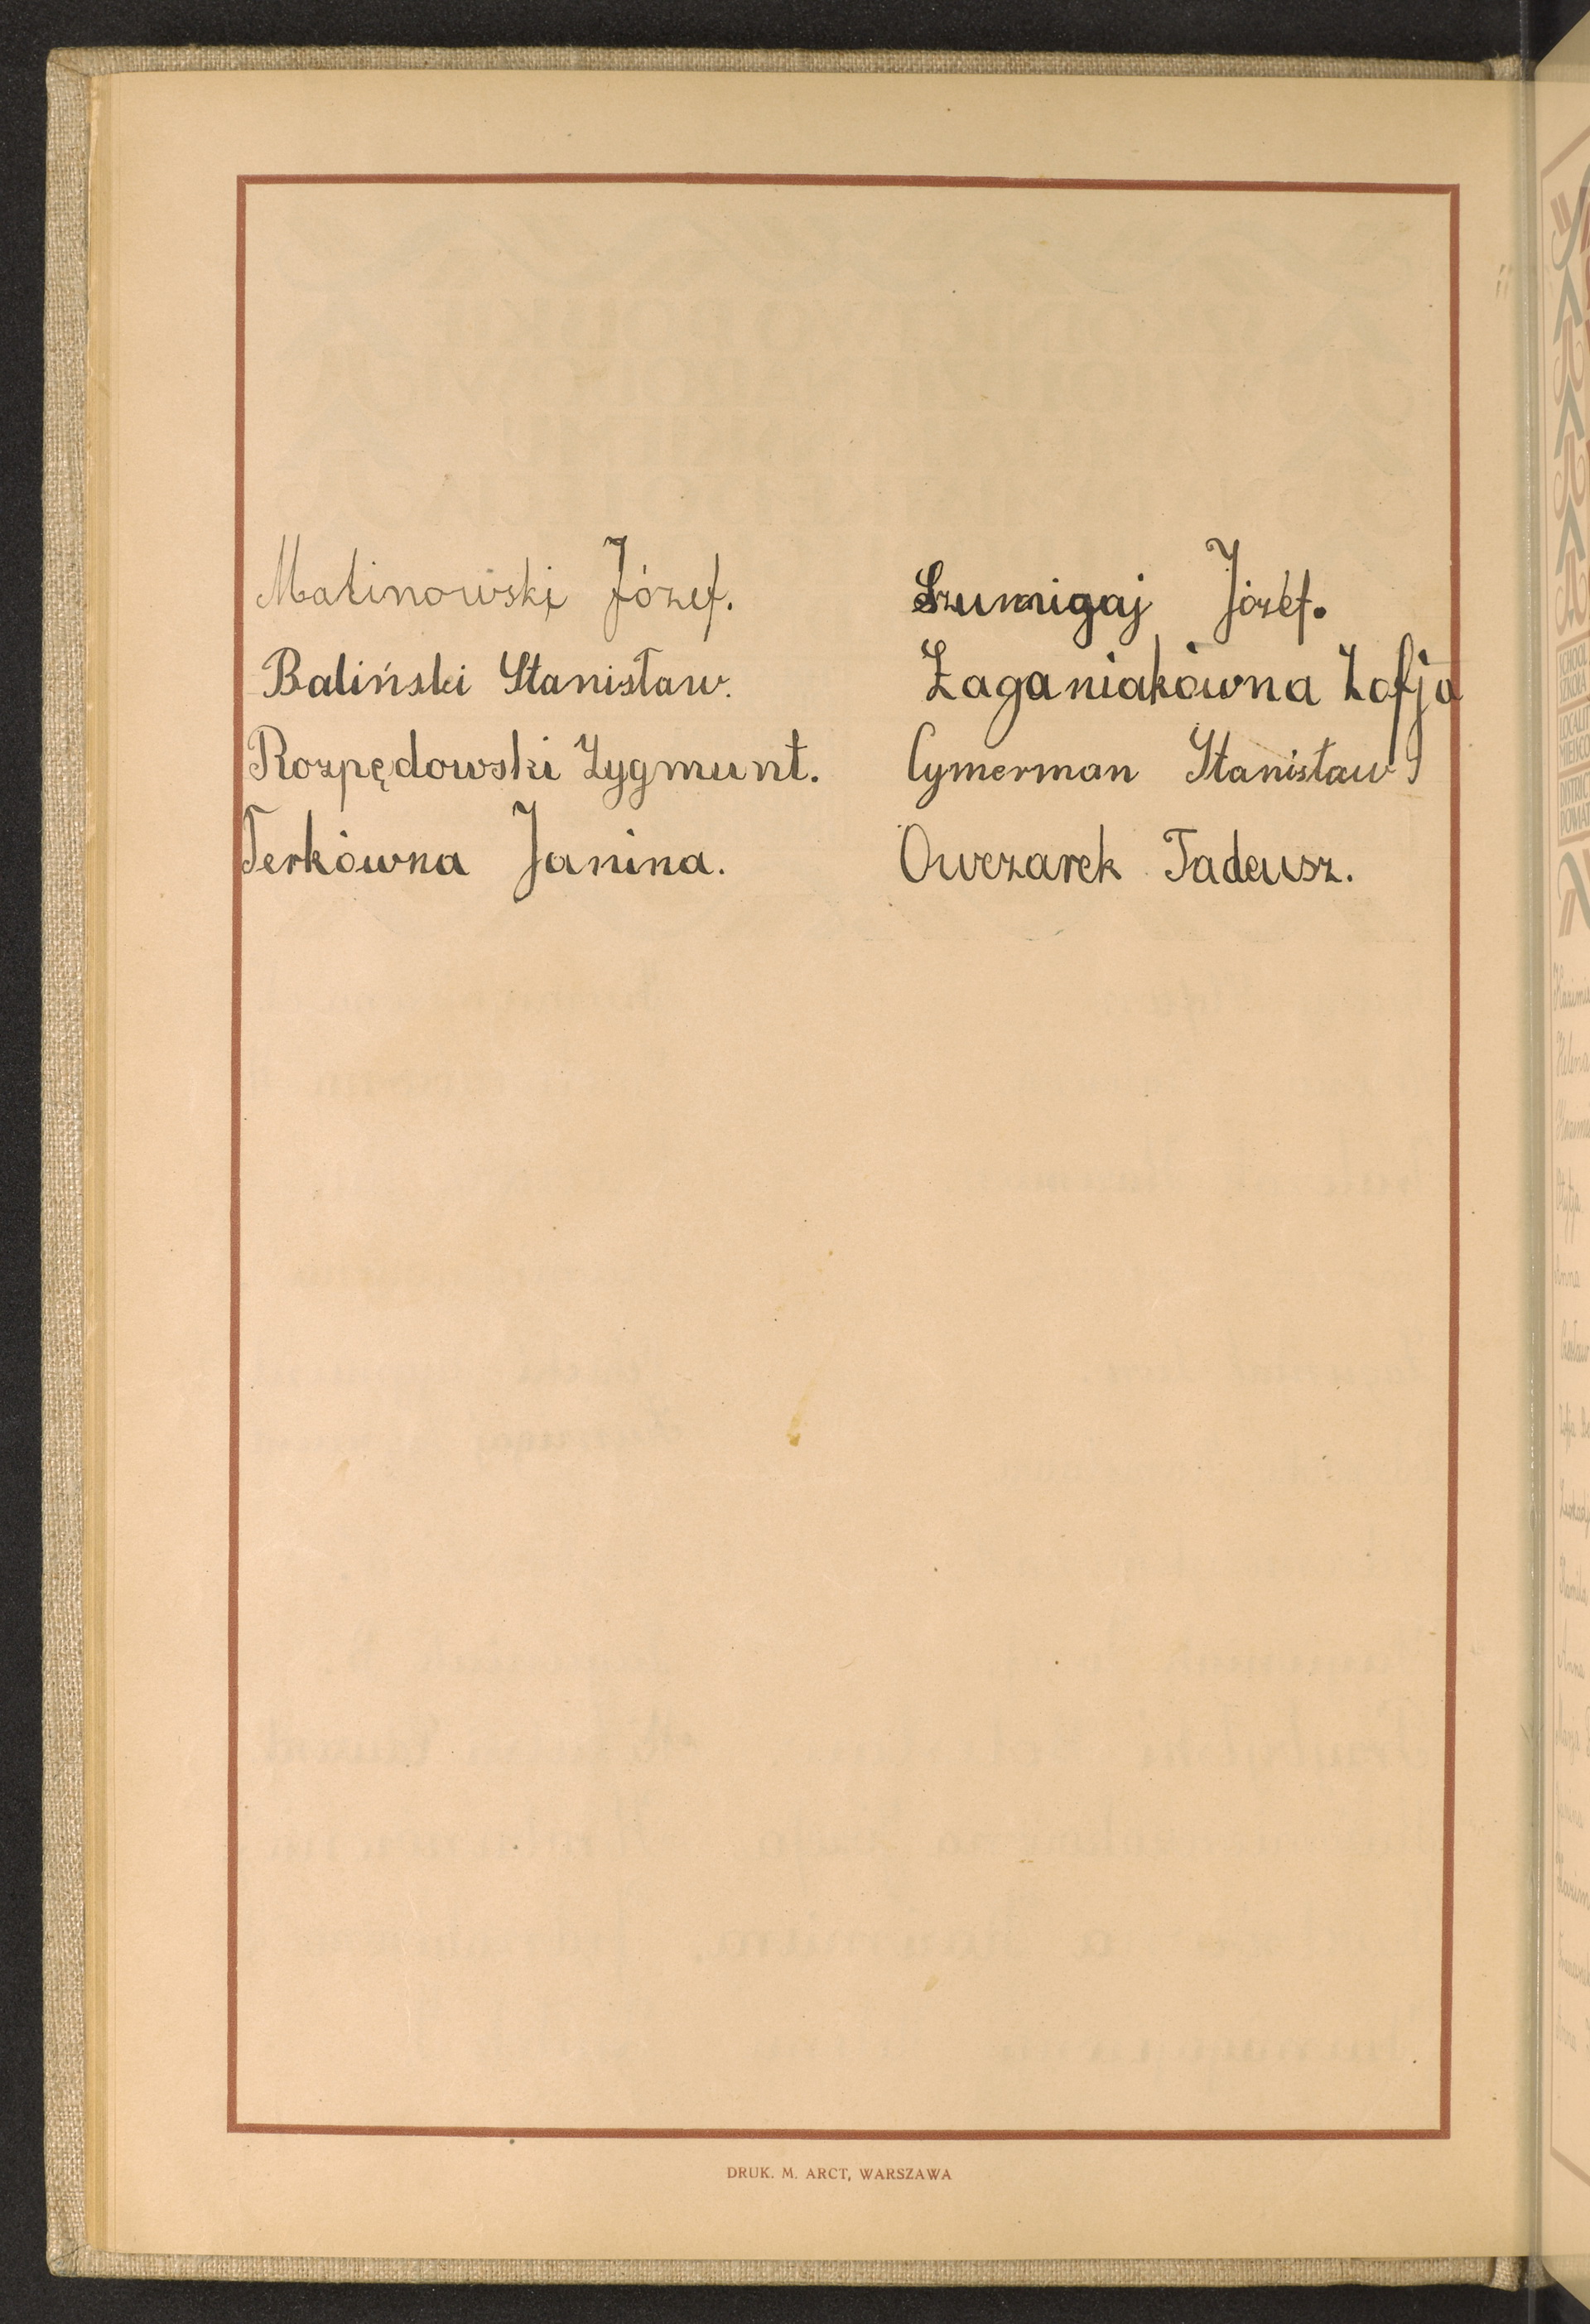 Malinowski Józef.
Baliński Stanisław.
Rozpędowski Zygmunt.
Terkówna Janina.
Szumigaj Józef.
Zaganiakówna Zofja
Cymerman Stanisław
Owczarek Tadeusz.
DRUK. M. ARCT, WARSZAWA